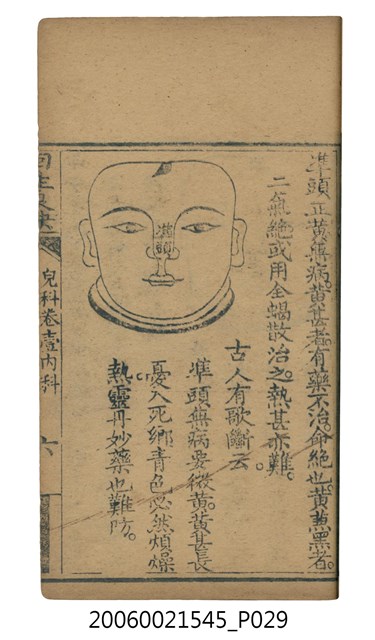 準頭正黃無病。黃甚者有藥不治。命絕也。黃兼黑者。
二氣絕或用全蝎散治之。熱甚亦難。
古人有歌斷云。
準頭無病要微黃。黃甚長
憂入死鄉青色必然煩燥
熱。靈丹妙藥也難防。
準頭
回生
兒科卷壹內科
六
20060021545_P029